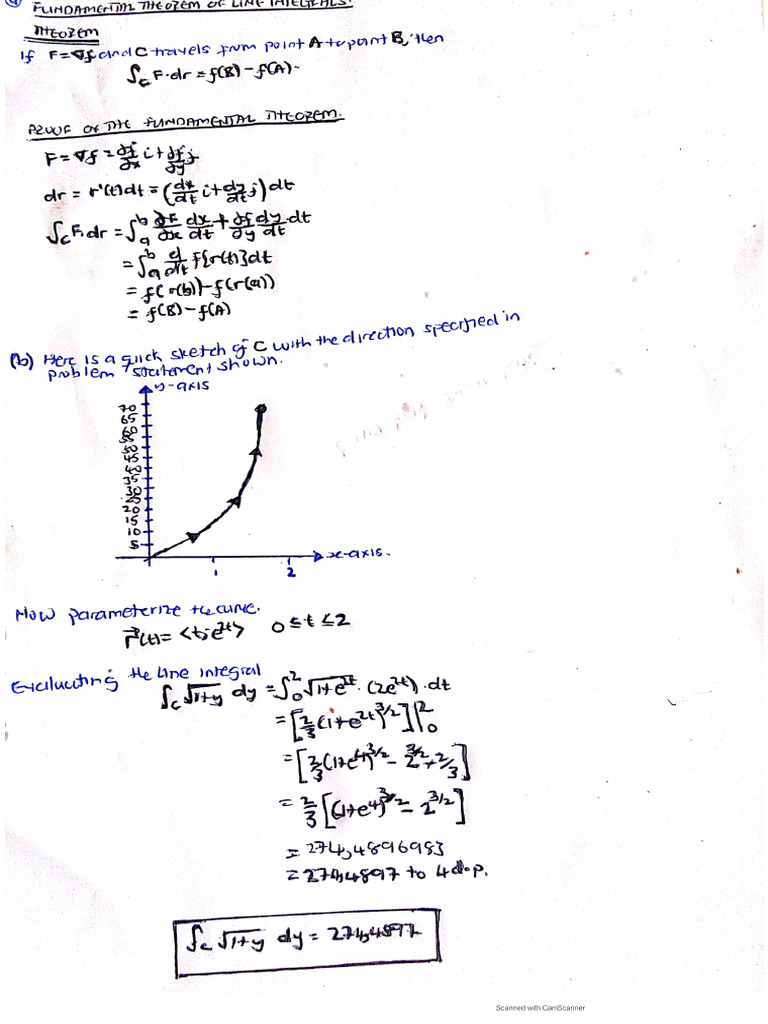 4
FUNDAMENTAL THEOREM OF LINE INTEGRALS.
THEOREM
If F=∇f and C travels from point A to point B, then
∫_C F·dr = f(B) - f(A).
PROOF OF THE FUNDAMENTAL THEOREM.
F = ∇f = ∂f/∂x i + ∂f/∂y j
dr = r'(t)dt = (dx/dt i + dy/dt j) dt
∫_C F·dr = ∫_a^b ∂F/∂x dx/dt + ∂f/∂y dy/dt · dt
= ∫_a^b d/dt f[r(t)]dt
= f(r(b)) - f(r(a))
= f(B) - f(A)
(b) Here is a quick sketch of C with the direction specified in
problem statement shown.
y-axis
70
65
60
55
50
45
40
35
30
25
20
15
10
5
x-axis.
1 2
Now parameterize the curve.
r⃗(t) = <t, e^2t> 0 ≤ t ≤ 2
Evaluating the line integral
∫_C √1+y dy = ∫_0^2 √1+e^2t · (2e^2t) · dt
= [2/3 (1+e^2t)^3/2] |_0^2
= [2/3 (1+e^4)^3/2 - 2^3/2 + 2/3]
= 2/3 [(1+e^4)^3/2 - 2^3/2]
= 274,4896983
= 274,4897 to 4 d.p.
∫_C √1+y dy = 274,4897
Scanned with CamScanner